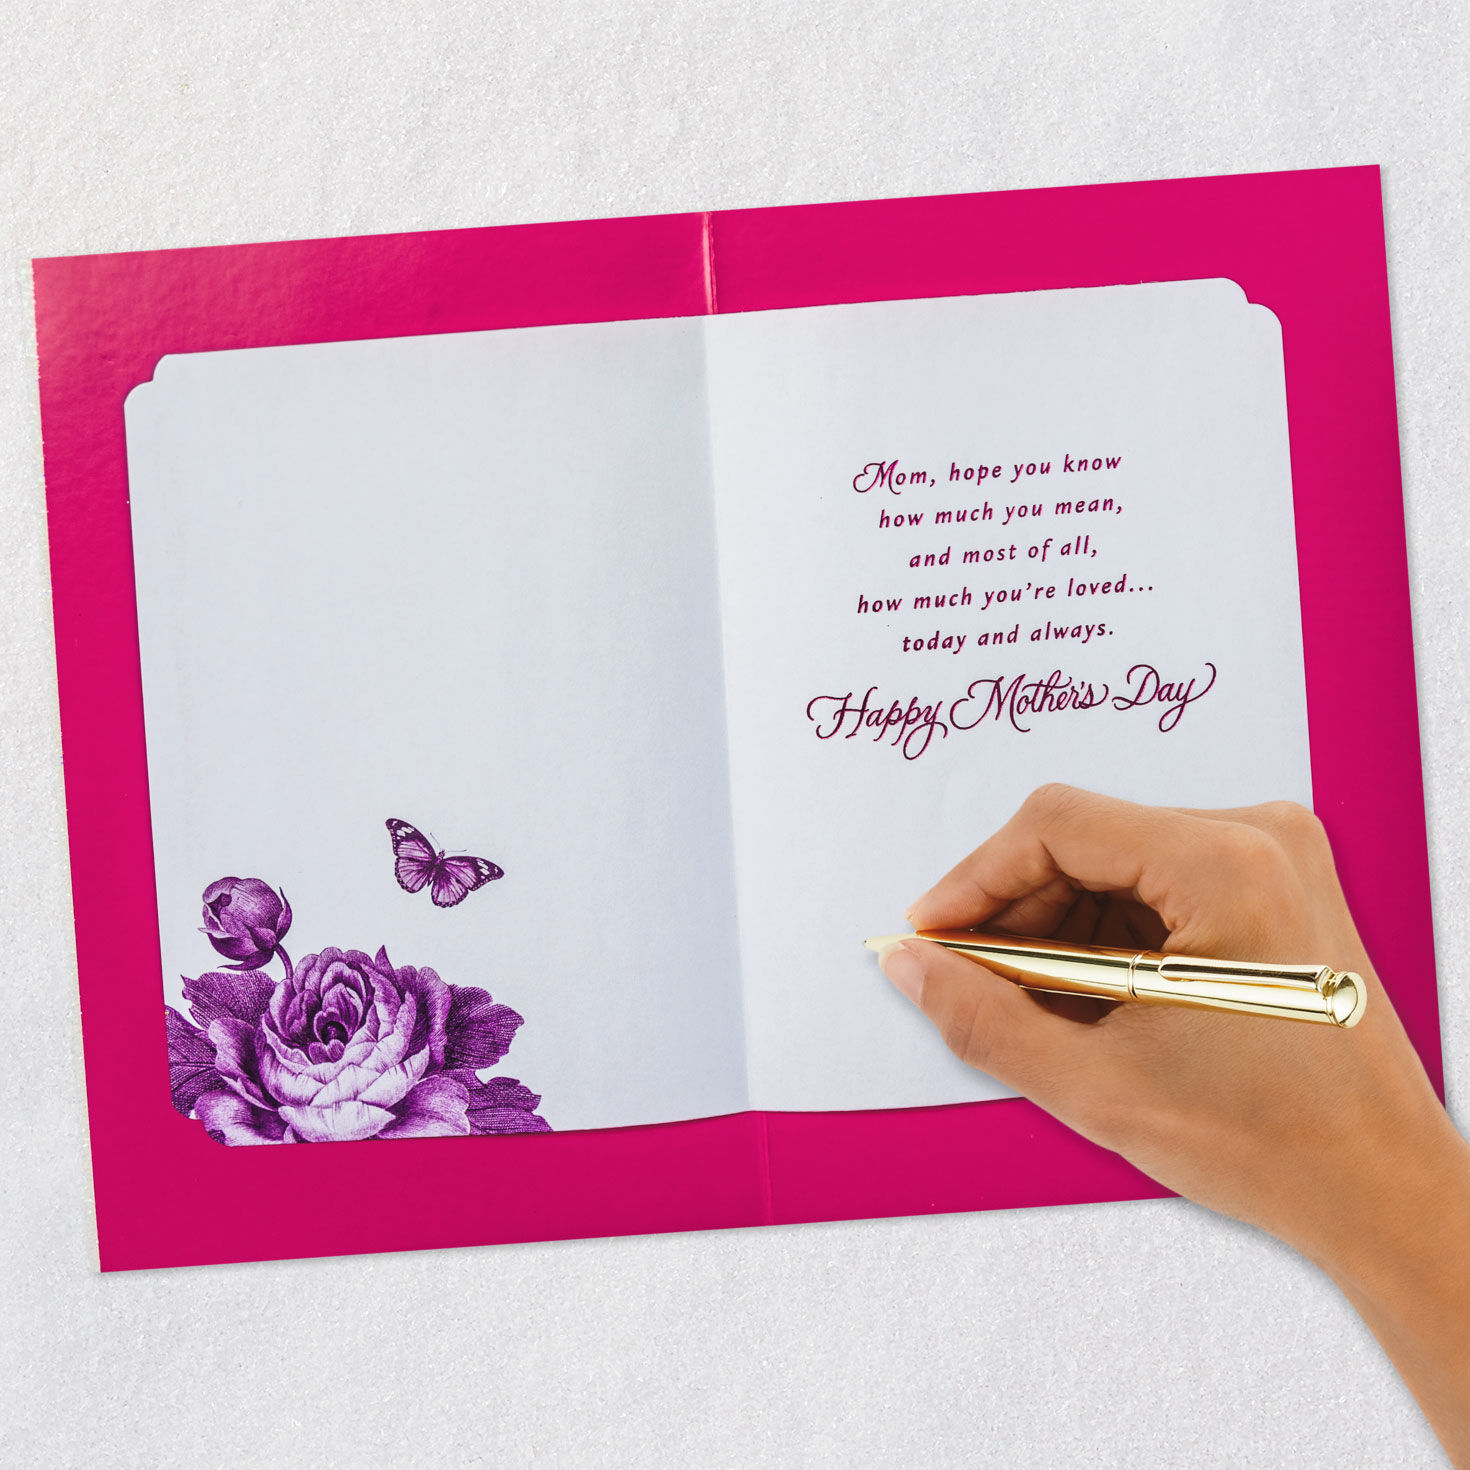 Mom, hope you know
how much you mean,
and most of all,
how much you're loved...
today and always.
Happy Mother's Day